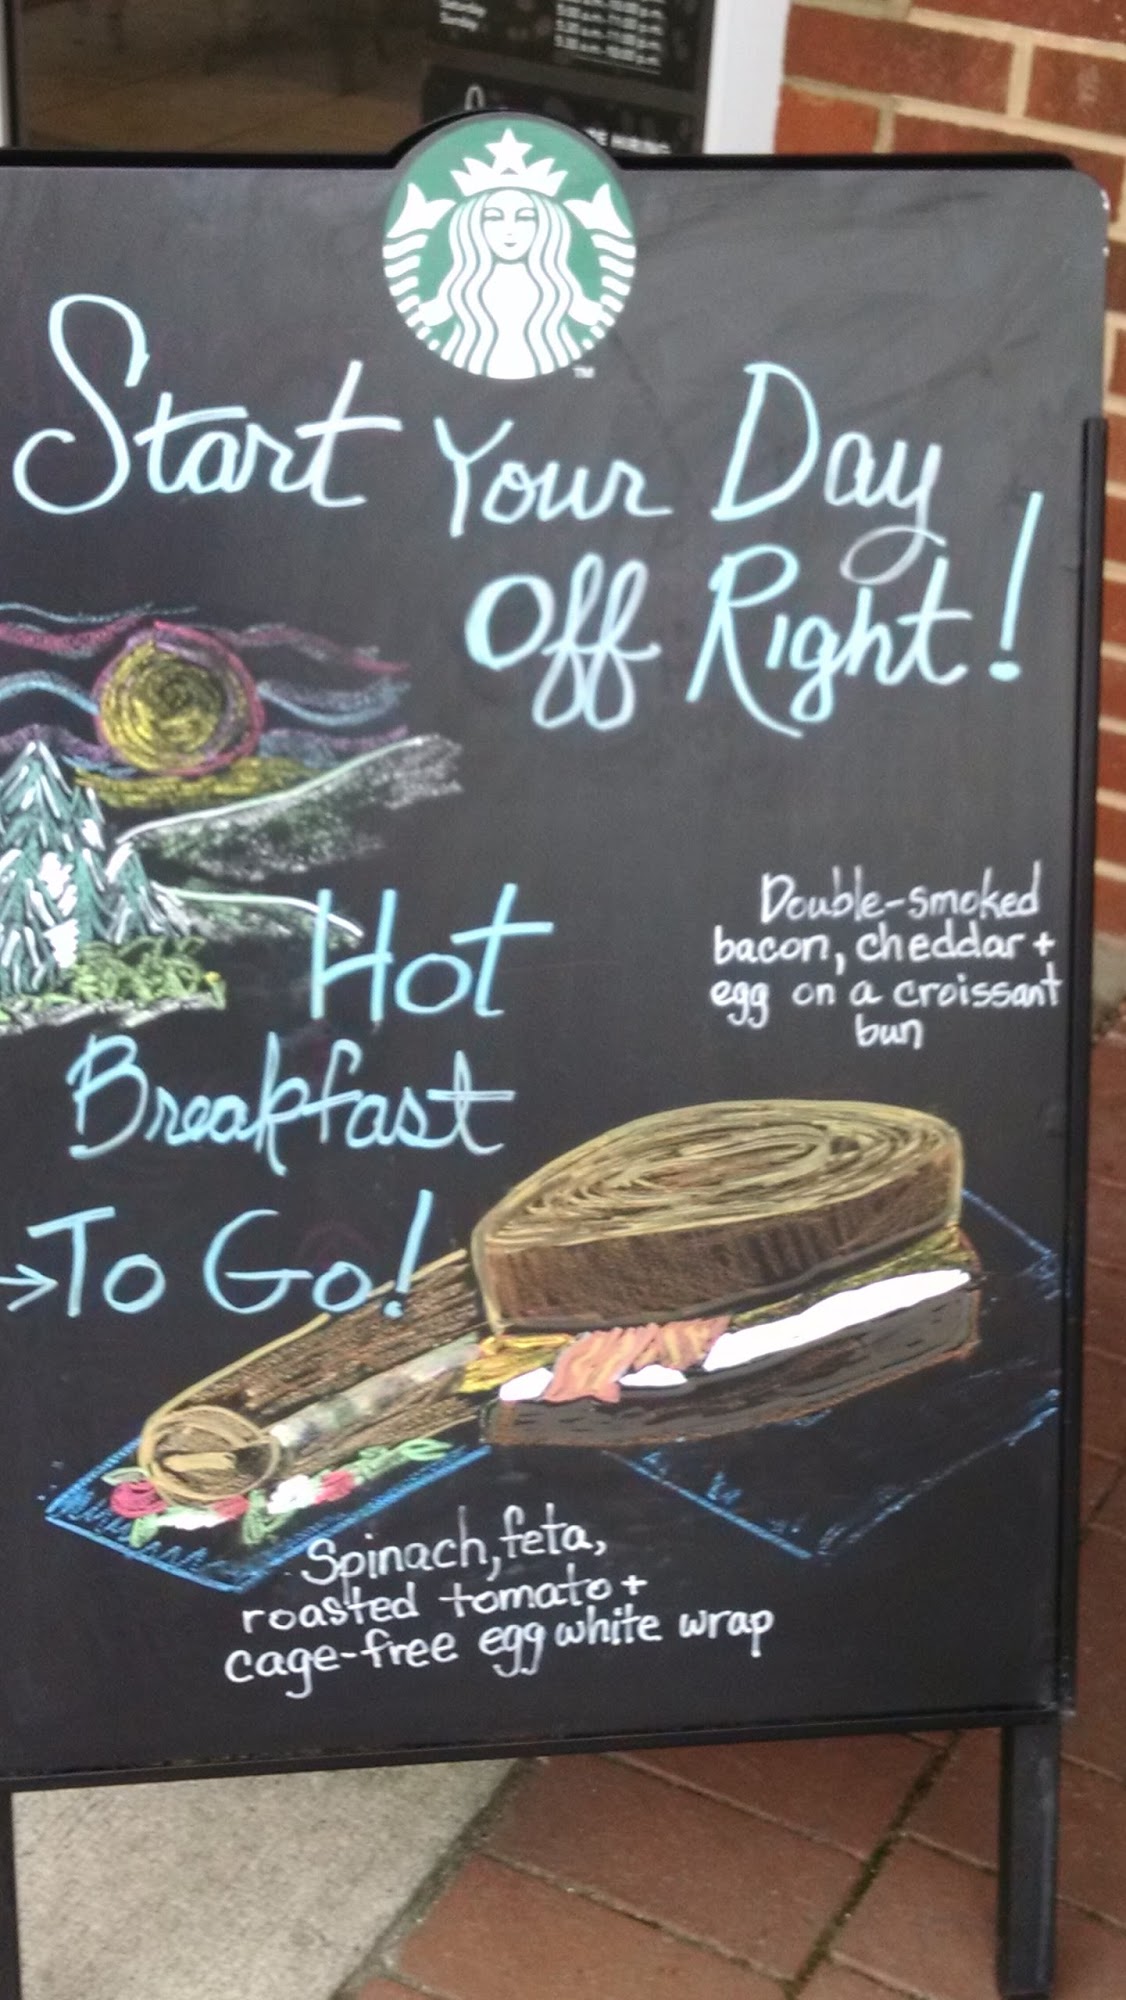 Saturday
Sunday
HIRING
TM
Start Your Day
Off Right!
Hot
Breakfast
→To Go!
Double-smoked
bacon, cheddar +
egg on a croissant
bun
Spinach, feta,
roasted tomato +
cage-free egg white wrap